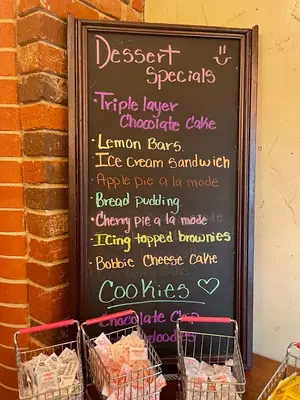 Dessert
Specials
Triple layer
Chocolate Cake
Lemon Bars.
Ice cream sandwich
Apple pie a la mode
Bread pudding
Cherry pie a la mode
Icing topped brownies
Bobbie Cheese Cake
Cookies
Chocolate Chip